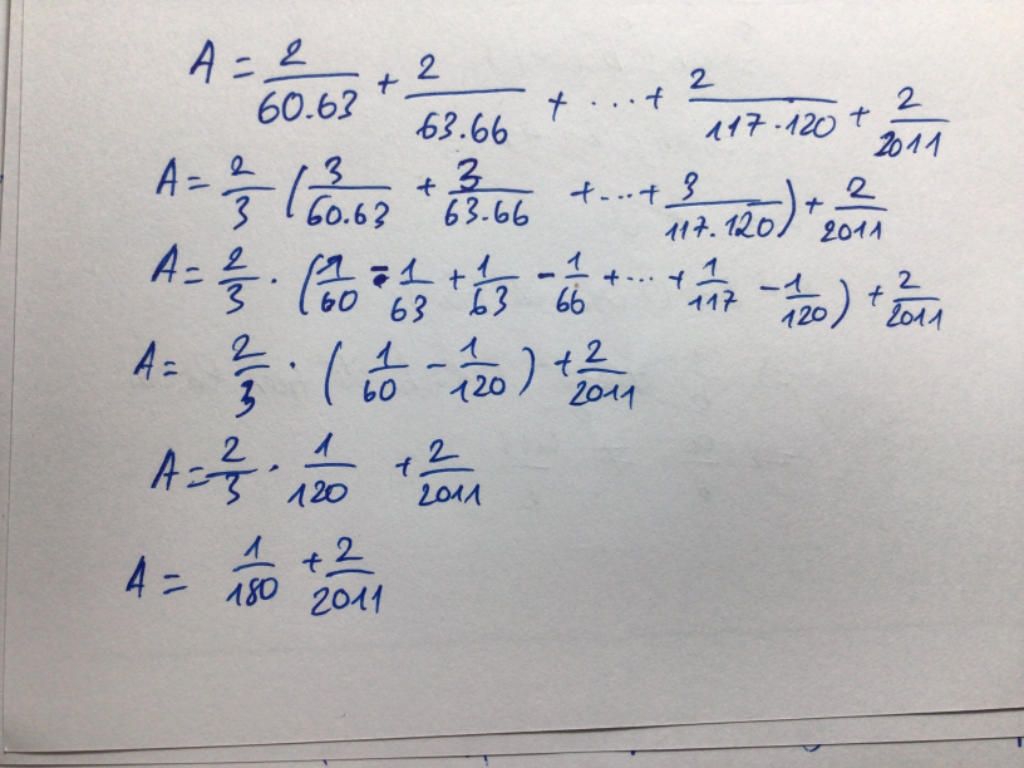 A = 2/60.63 + 2/63.66 + ... + 2/117.120 + 2/2011
A = 2/3 (3/60.63 + 3/63.66 + ... + 3/117.120) + 2/2011
A = 2/3 . (1/60 - 1/63 + 1/63 - 1/66 + ... + 1/117 - 1/120) + 2/2011
A = 2/3 . (1/60 - 1/120) + 2/2011
A = 2/3 . 1/120 + 2/2011
A = 1/180 + 2/2011